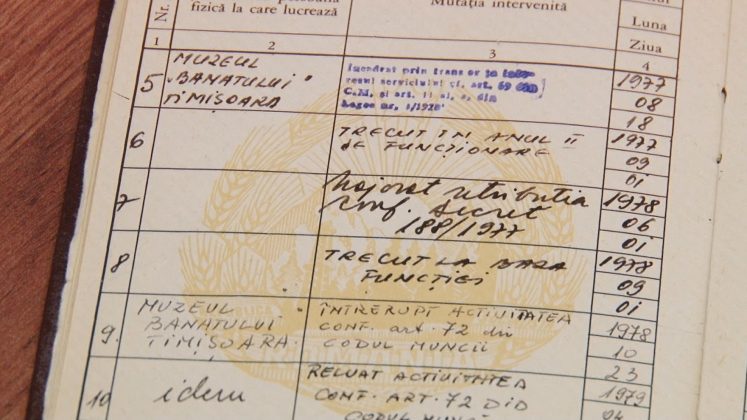 Nr.
fizică la care lucrează
Mutația intervenită
Luna
Ziua
1
2
3
4
5
MUZEUL
"BANATULUI"
TIMIȘOARA
Încadrat prin transfer în inte-
resul serviciului cf. art. 69 din
C.M. și art. 11 al. 2, din
Legea nr. 1/1970
1977
08
18
6
TRECUT ÎN ANUL II
DE FUNCȚIONARE
1977
09
01
7
Majorat retribuția
conf. Decret
188/1977
1978
06
01
8
TRECUT LA BAZA
FUNCȚIEI
1978
09
01
9.
MUZEUL
BANATULUI
TIMIȘOARA.
ÎNTRERUPT ACTIVITATEA
CONF. art. 72 din
CODUL MUNCII
1978
10
23
10
idem
RELUAT ACTIVITATEA
CONF. ART. 72 DID
CODUL
1979